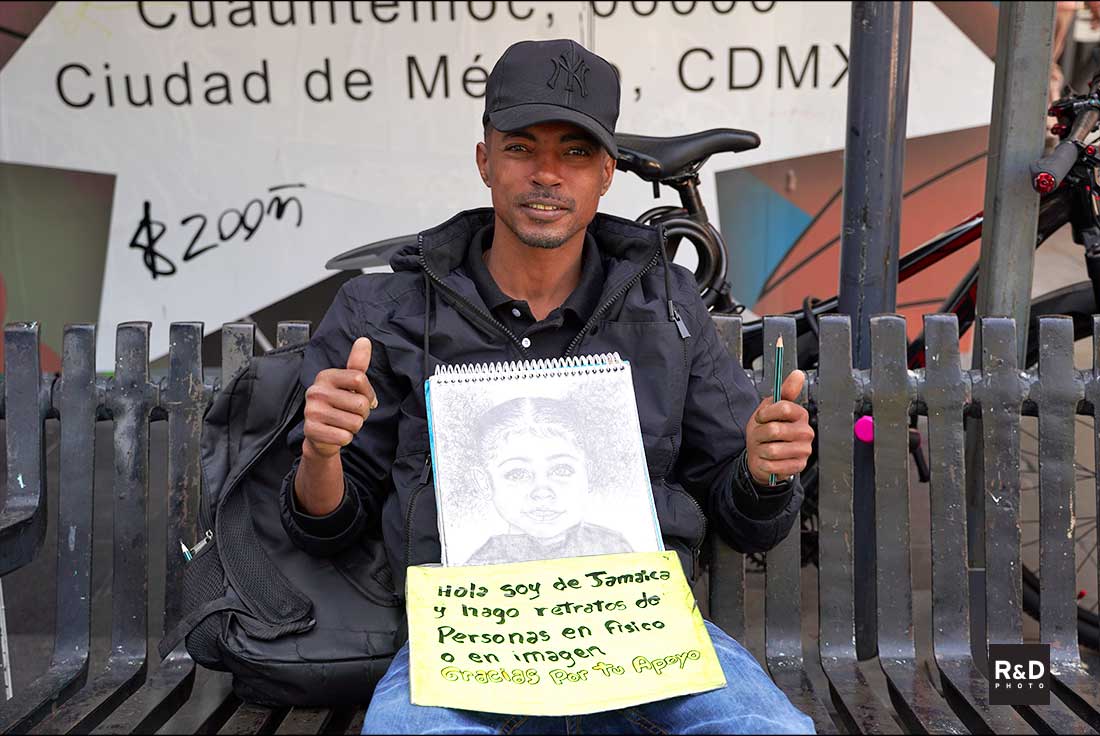 Cuauhtémoc, 06600
Ciudad de Mé , CDMX
$200 m̄
NY
Hola soy de Jamaica
y hago retratos de
Personas en físico
o en imagen
Gracias por tu Apoyo
R&D
PHOTO